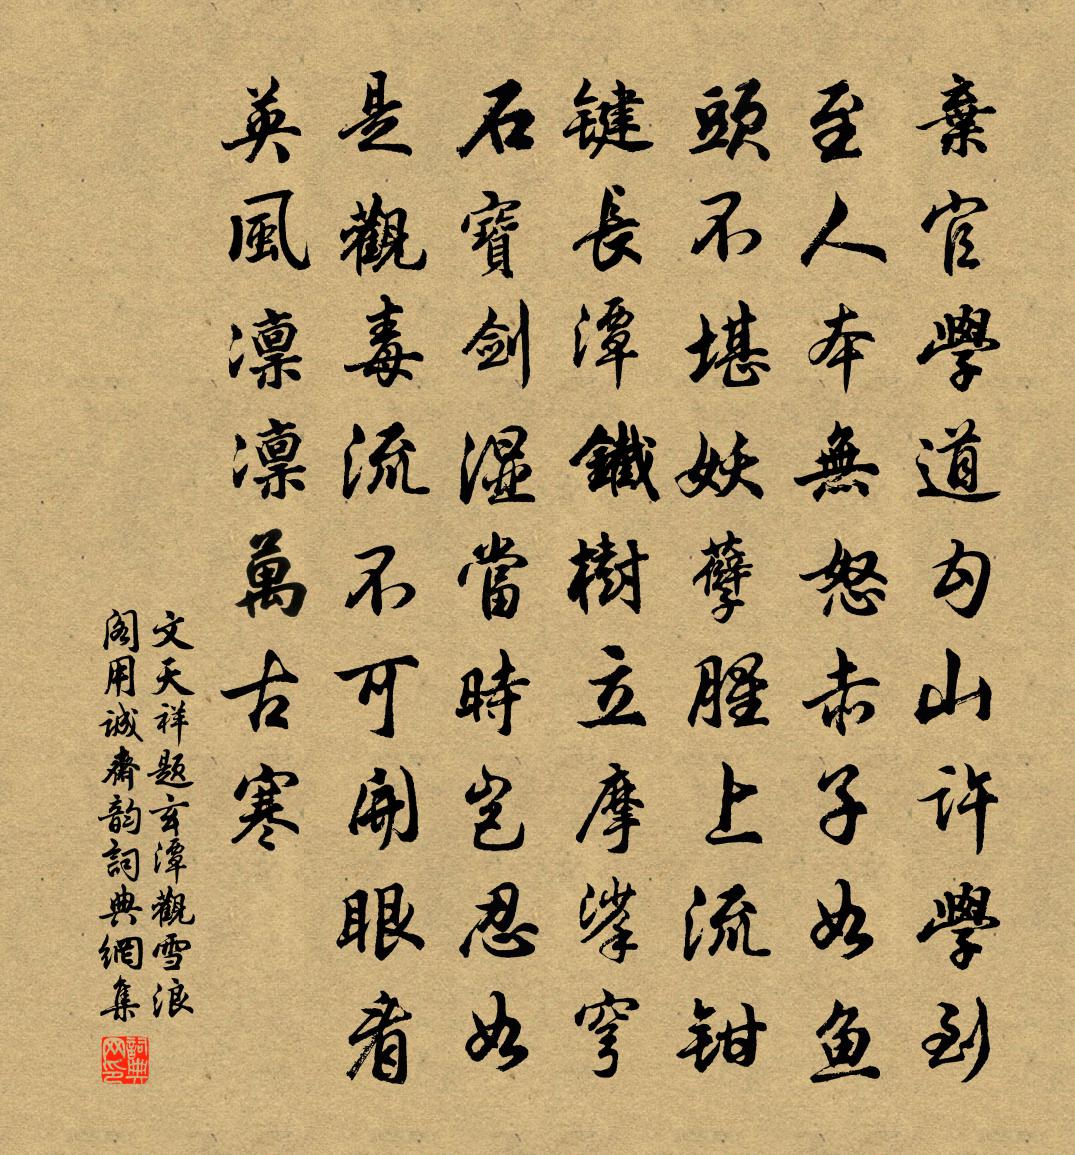 棄官學道勾山許學到
至人本無怒赤子如魚
頭不堪妖孽腥上流鉗
键長潭鐵樹立摩挲穹
石寶劍濕當時豈忍如
是觀毒流不可開眼看
英風凛凛萬古寒
文天祥题玄潭觀雪浪
阁用诚齋韵詞典網集
詞典网印